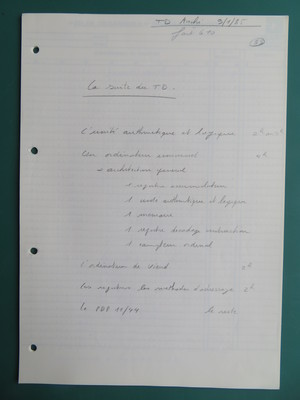 TD Archi 9/1/85
La suite du TD.
L'unité arithmétique et logique 2h
Un ordinateur 2h
architecture générale
1 registre accumulateur
1 unité arithmétique et logique
1 mémoire
1 registre instruction
1 compteur ordinal
L'ordinateur de
Les registres les méthodes d'adressage 2h
le PDP 11/44 le reste